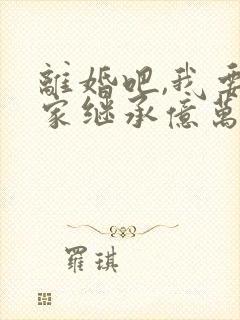 離婚吧,我要
家继承億萬
羅琪